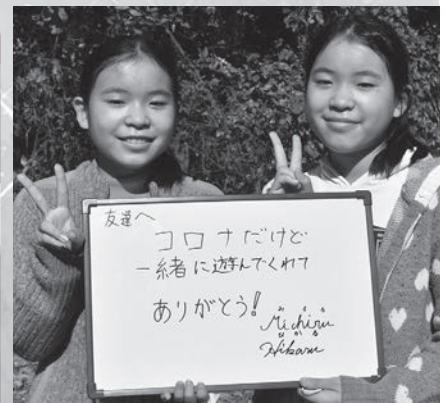 友達へ
コロナだけど
一緒に遊んでくれて
ありがとう!
みちる
Michiru
ひかる
Hikaru